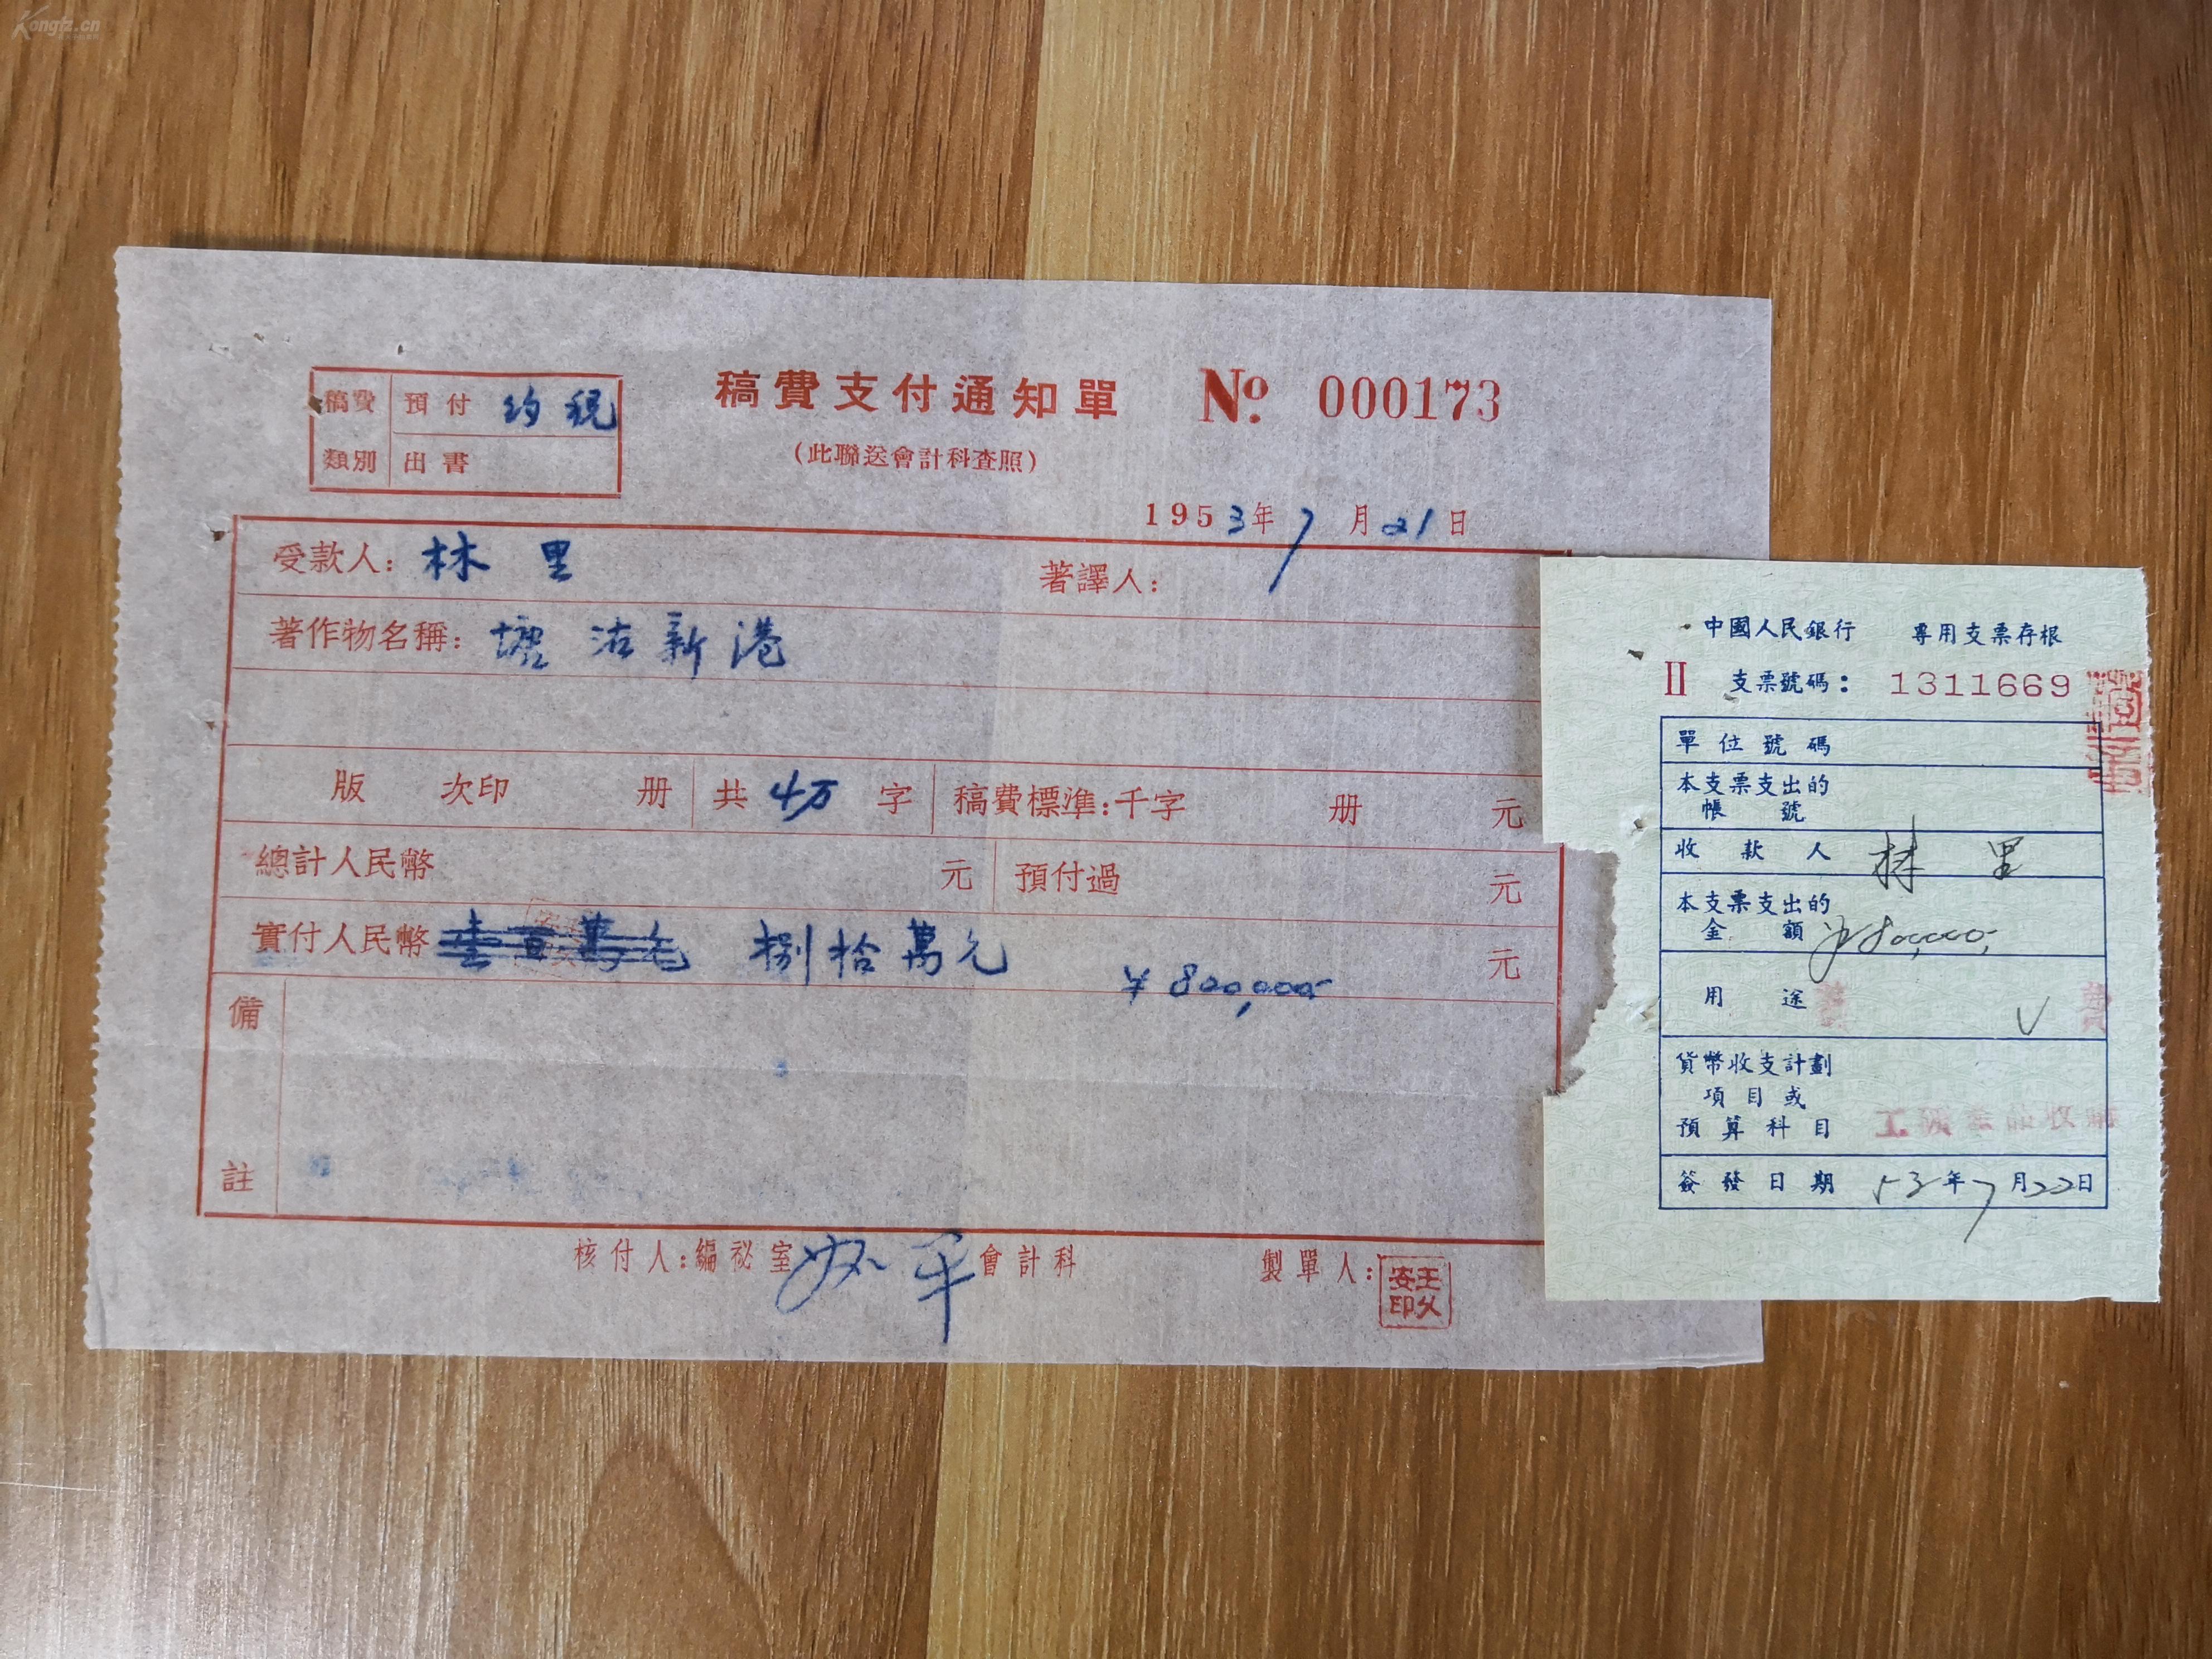 Kongfz.cn
稿費支付通知單 No. 000173
(此聯送會計科查照)
稿費類別 預付 約稅
出書
1953年7月21日
受款人:林里 著譯人:
著作物名稱:塘沽新港
版 次印 册 共4万字 稿費標準:千字 册 元
總計人民幣 元 預付過 元
實付人民幣 壹百萬元 捌拾萬元 ¥800,000- 元
備註
核付人:編祕室 會計科 製單人:
中國人民銀行 專用支票存根
II 支票號碼: 1311669
單位號碼
本支票支出的
帳號
收款人 林里
本支票支出的
金額 800,000-
用途 費
貨幣收支計劃
項目或
預算科目
簽發日期 53年7月22日